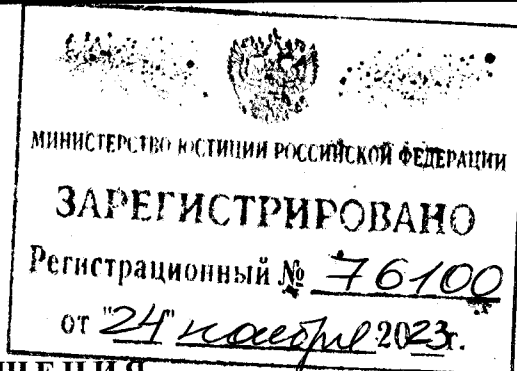 МИНИСТЕРСТВО ЮСТИЦИИ РОССИЙСКОЙ ФЕДЕРАЦИИ
ЗАРЕГИСТРИРОВАНО
Регистрационный № 76100
от "24" ноября 2023г.